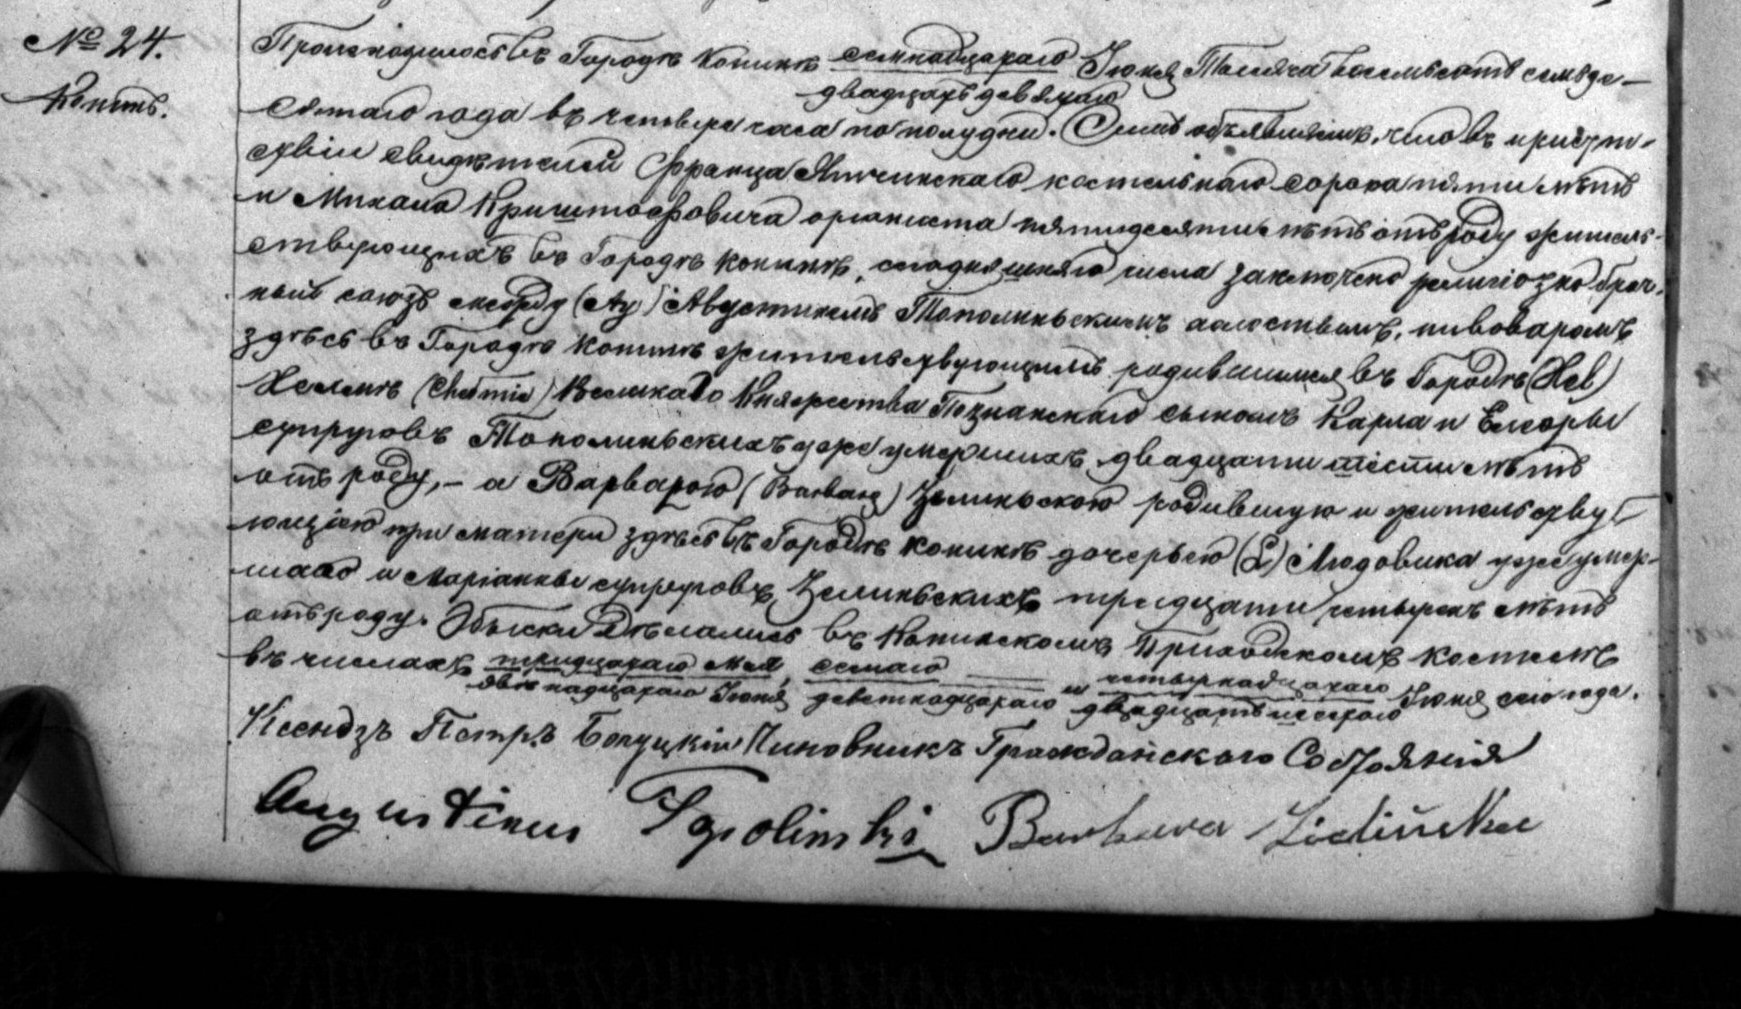 № 24.
Конинъ.
Происходило въ Городѣ Конинѣ семнадцатаго Іюня Тысяча восемьсотъ семьде-
двадцать девятаго
сятаго года въ четыре часа по полудни. Симъ объявляемъ, что въ присут-
ствіи свидѣтелей Франца костельнаго сорока пяти лѣтъ
и Михаила Криштофовича органиста пятидесяти лѣтъ отъ роду житель-
ствующихъ въ Городѣ Конинѣ, сегодняшняго числа заключено религіозно брач-
ный союзъ между (Au) Августиномъ Тополиньскимъ холостымъ, пивоваромъ
здѣсь въ Городѣ Конинѣ жительствующимъ родившимся въ Городѣ (Хел)
Хелмнѣ (Chełmnie) Великаго Княжества Познанскаго сыномъ Карла и
супруговъ Тополиньскихъ уже умершихъ, двадцати шести лѣтъ
отъ роду, – а Варварою (Barbarą) Зелиньскою родившуюся и жительству-
ющею при матери здѣсь въ Городѣ Конинѣ дочерью (L) Людовика уже умер-
шаго и Маріанны супруговъ Зелиньскихъ тридцати четырехъ лѣтъ
отъ роду. Обыски дѣлались въ Конинскомъ Приходскомъ Костелѣ
въ числахъ тридцатаго Мая, седмаго и четырнадцатаго Іюня сего года.
двѣнадцатаго Іюня девятнадцатаго двадцать шестаго
Ксендзъ Петръ Чиновникъ Гражданскаго Состоянія
Augustinus Topolinski Barbara Zielińska